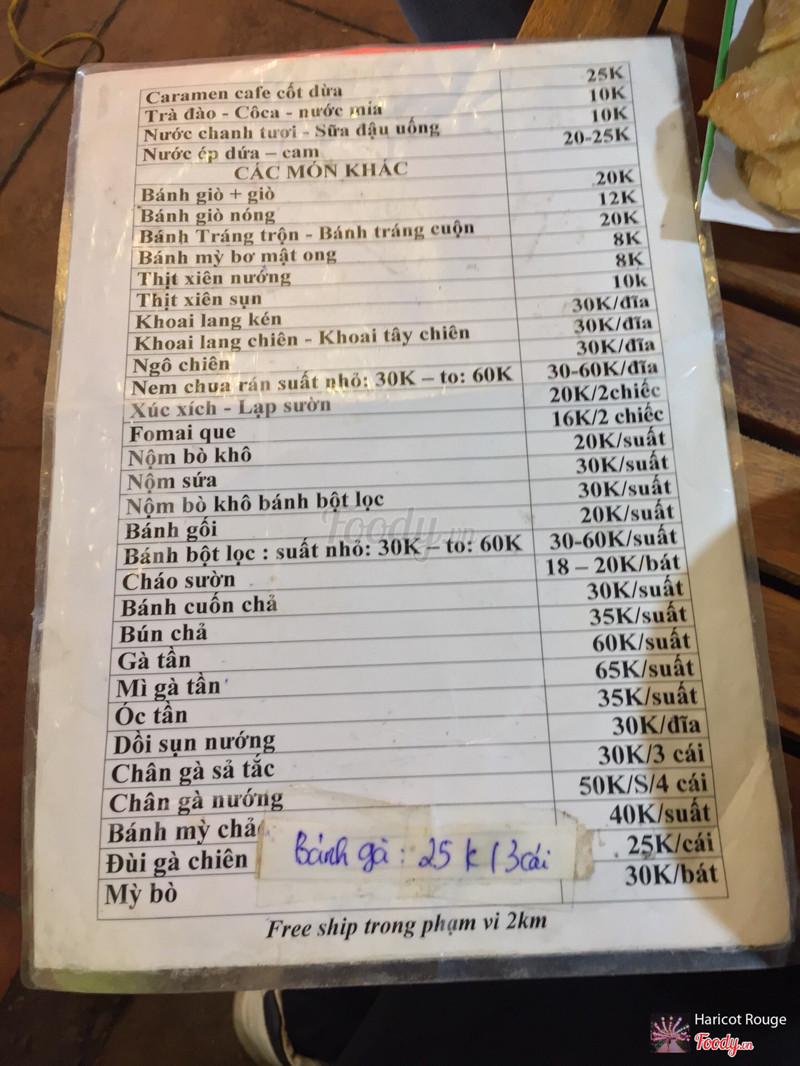 Caramen cafe cốt dừa 25K
Trà đào - Côca - nước mía 10K
Nước chanh tươi - Sữa đậu uống 10K
Nước ép dứa – cam 20-25K
CÁC MÓN KHÁC
Bánh giò + giò 20K
Bánh giò nóng 12K
Bánh Tráng trộn - Bánh tráng cuộn 20K
Bánh mỳ bơ mật ong 8K
Thịt xiên nướng 8K
Thịt xiên sụn 10k
Khoai lang kén 30K/đĩa
Khoai lang chiên - Khoai tây chiên 30K/đĩa
Ngô chiên 30K/đĩa
Nem chua rán suất nhỏ: 30K – to: 60K 30-60K/đĩa
Xúc xích - Lạp sườn 20K/2chiếc
Fomai que 16K/2 chiếc
Nộm bò khô 20K/suất
Nộm sứa 30K/suất
Nộm bò khô bánh bột lọc 30K/suất
Bánh gối 20K/suất
Bánh bột lọc : suất nhỏ: 30K – to: 60K 30-60K/suất
Cháo sườn 18 – 20K/bát
Bánh cuốn chả 30K/suất
Bún chả 35K/suất
Gà tần 60K/suất
Mì gà tần 65K/suất
Óc tần 35K/suất
Dồi sụn nướng 30K/đĩa
Chân gà sả tắc 30K/3 cái
Chân gà nướng 50K/S/4 cái
Bánh mỳ 40K/suất
Đùi gà chiên 25K/cái
Bánh gà : 25 k / 3 cái
Mỳ bò 30K/bát
Free ship trong phạm vi 2km
Foody.vn
Haricot Rouge
Foody.vn